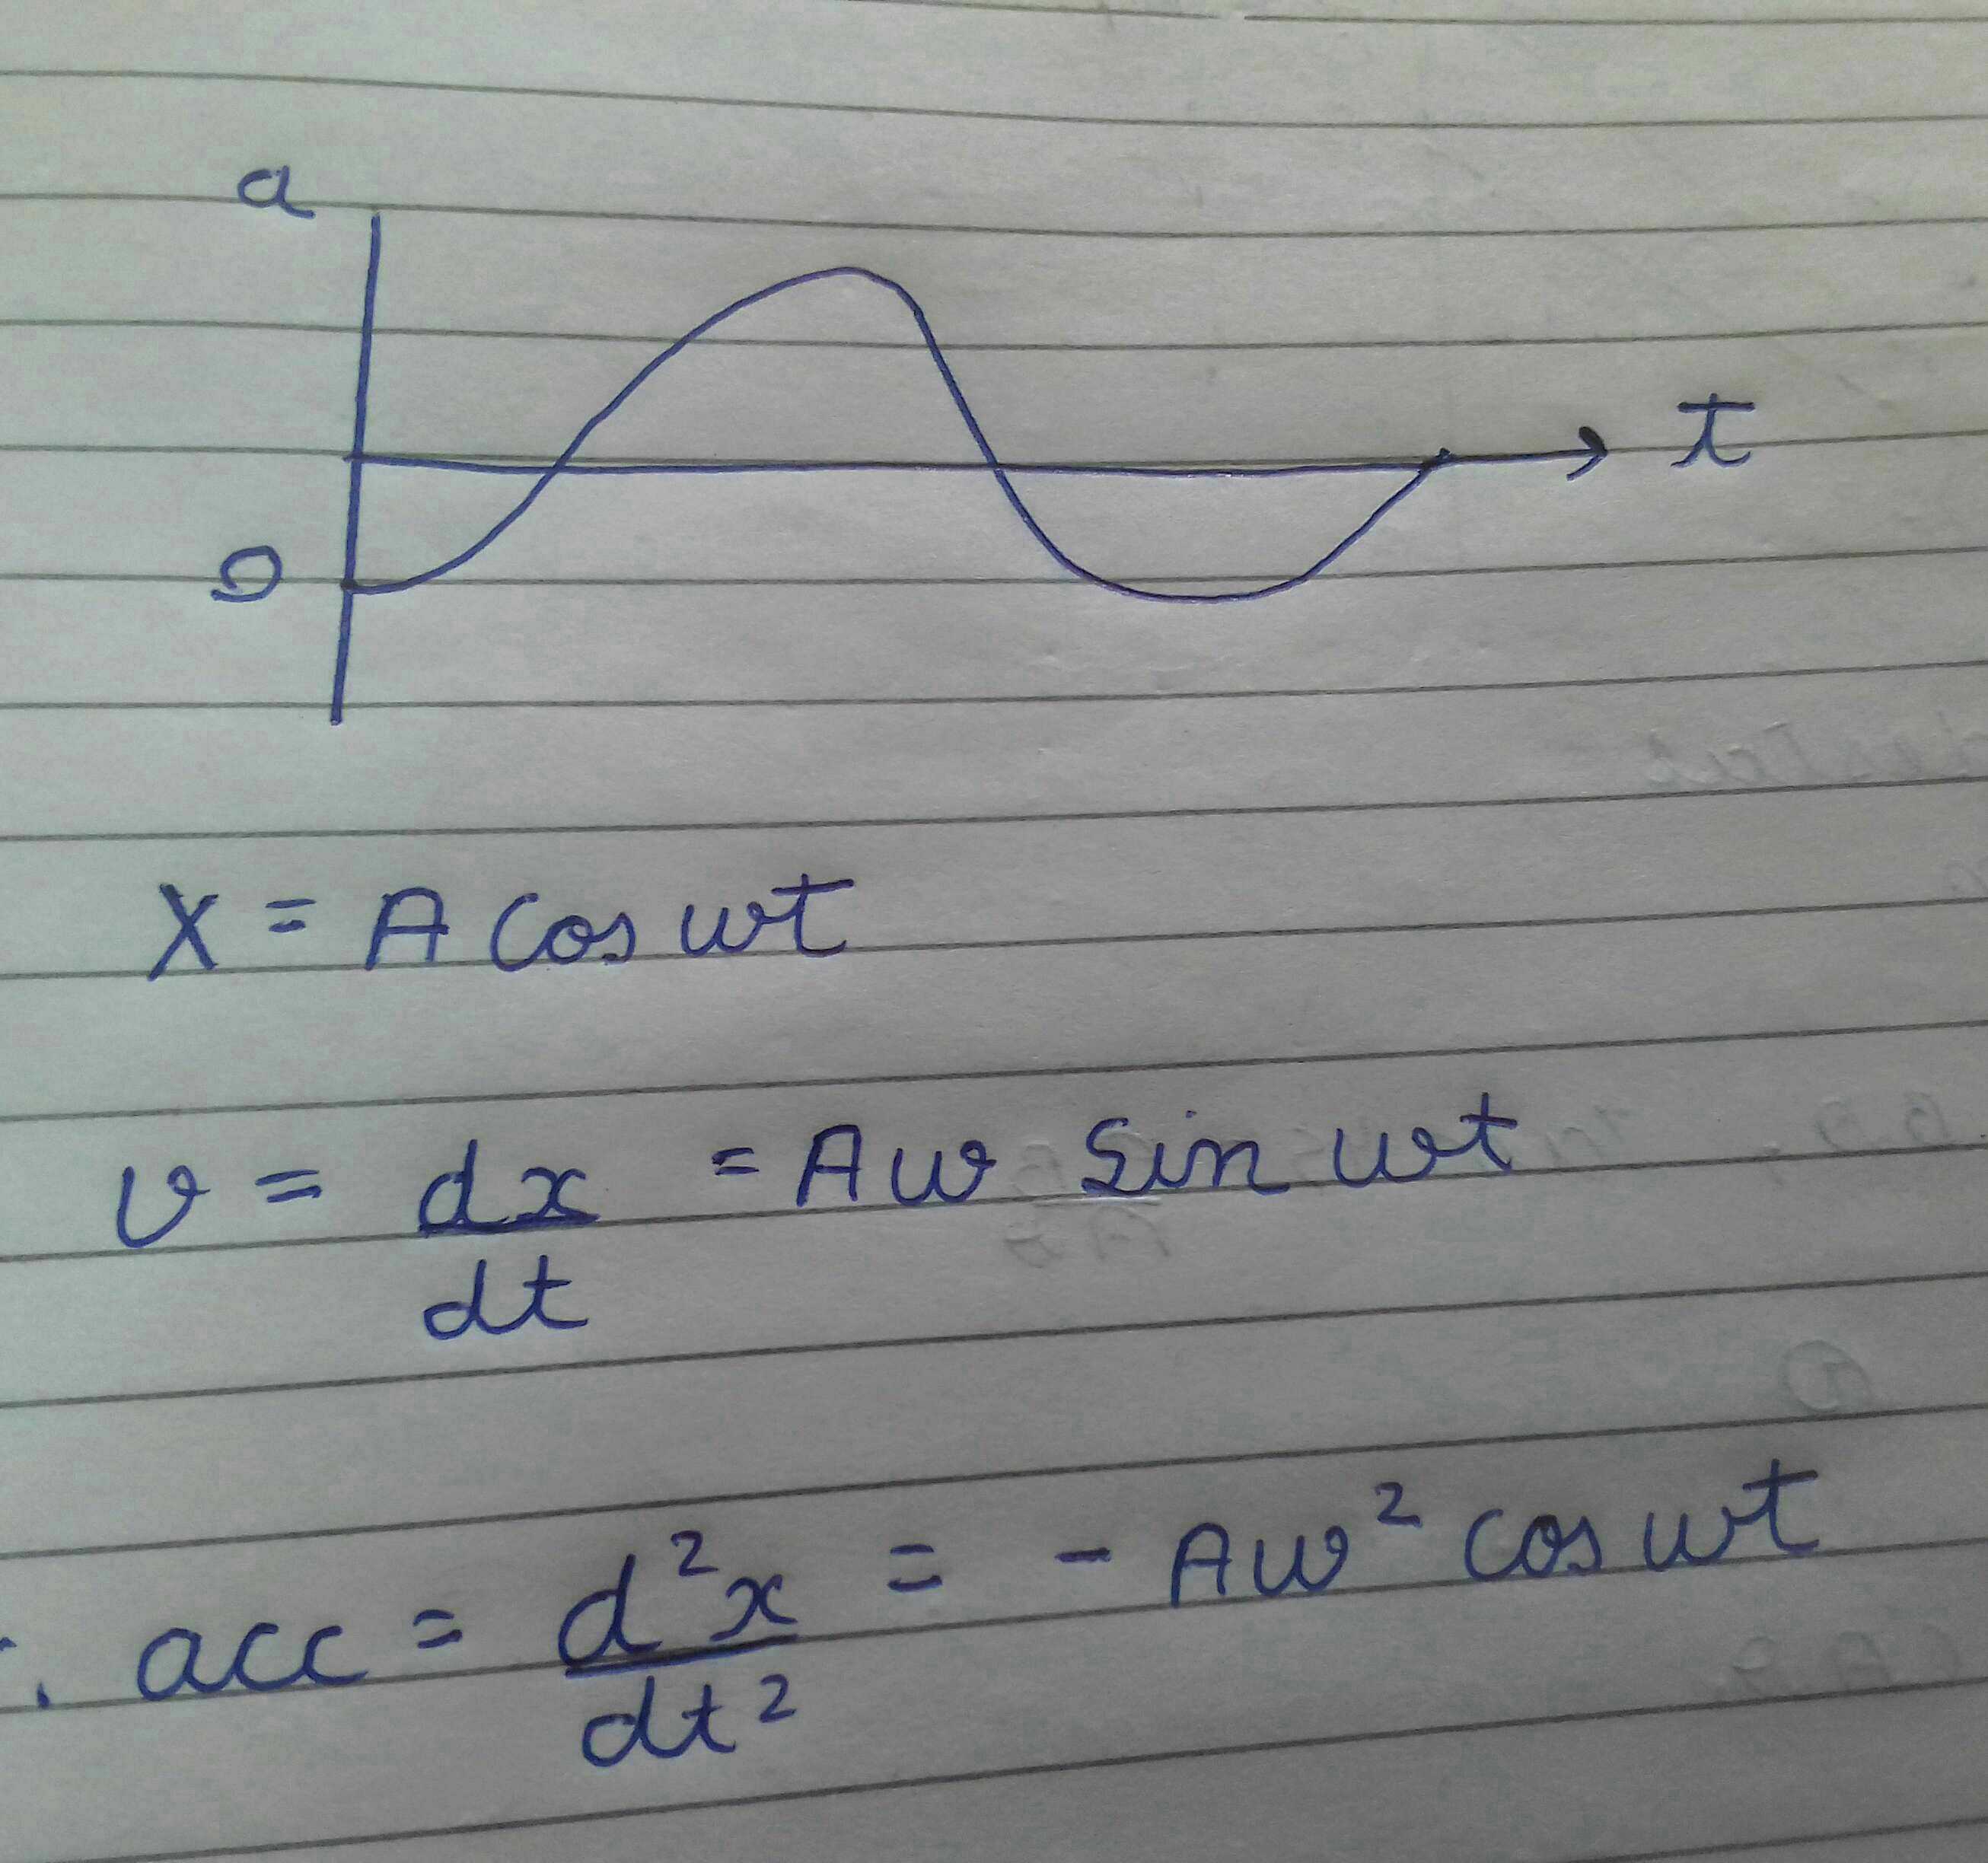 a
t
0
X = A cos wt
v = dx/dt = Aw sin wt
∴ acc = d²x/dt² = - Aw² cos wt